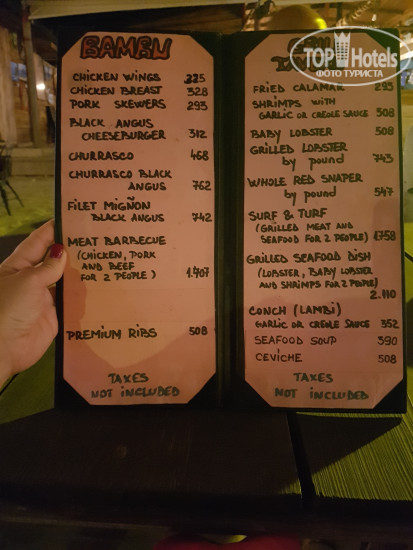 BAMBU
CHICKEN WINGS 325
CHICKEN BREAST 328
PORK SKEWERS 293
BLACK ANGUS
CHEESEBURGER 312
CHURRASCO 468
CHURRASCO BLACK
ANGUS 762
FILET MIGÑON
BLACK ANGUS 742
MEAT BARBECUE
(CHICKEN, PORK
AND BEEF
FOR 2 PEOPLE) 1.407
PREMIUM RIBS 508
TAXES
NOT INCLUDED
TOPHotels
ФОТО ТУРИСТА
FRIED CALAMAR 293
SHRIMPS WITH
GARLIC OR CREOLE SAUCE 508
BABY LOBSTER 508
GRILLED LOBSTER
by pound 743
WHOLE RED SNAPER
by pound 547
SURF & TURF
(GRILLED MEAT AND
SEAFOOD FOR 2 PEOPLE) 1758
GRILLED SEAFOOD DISH
(LOBSTER, BABY LOBSTER
AND SHRIMPS FOR 2 PEOPLE)
2.110
CONCH (LAMBI)
GARLIC OR CREOLE SAUCE 352
SEAFOOD SOUP 390
CEVICHE 508
TAXES
NOT INCLUDED